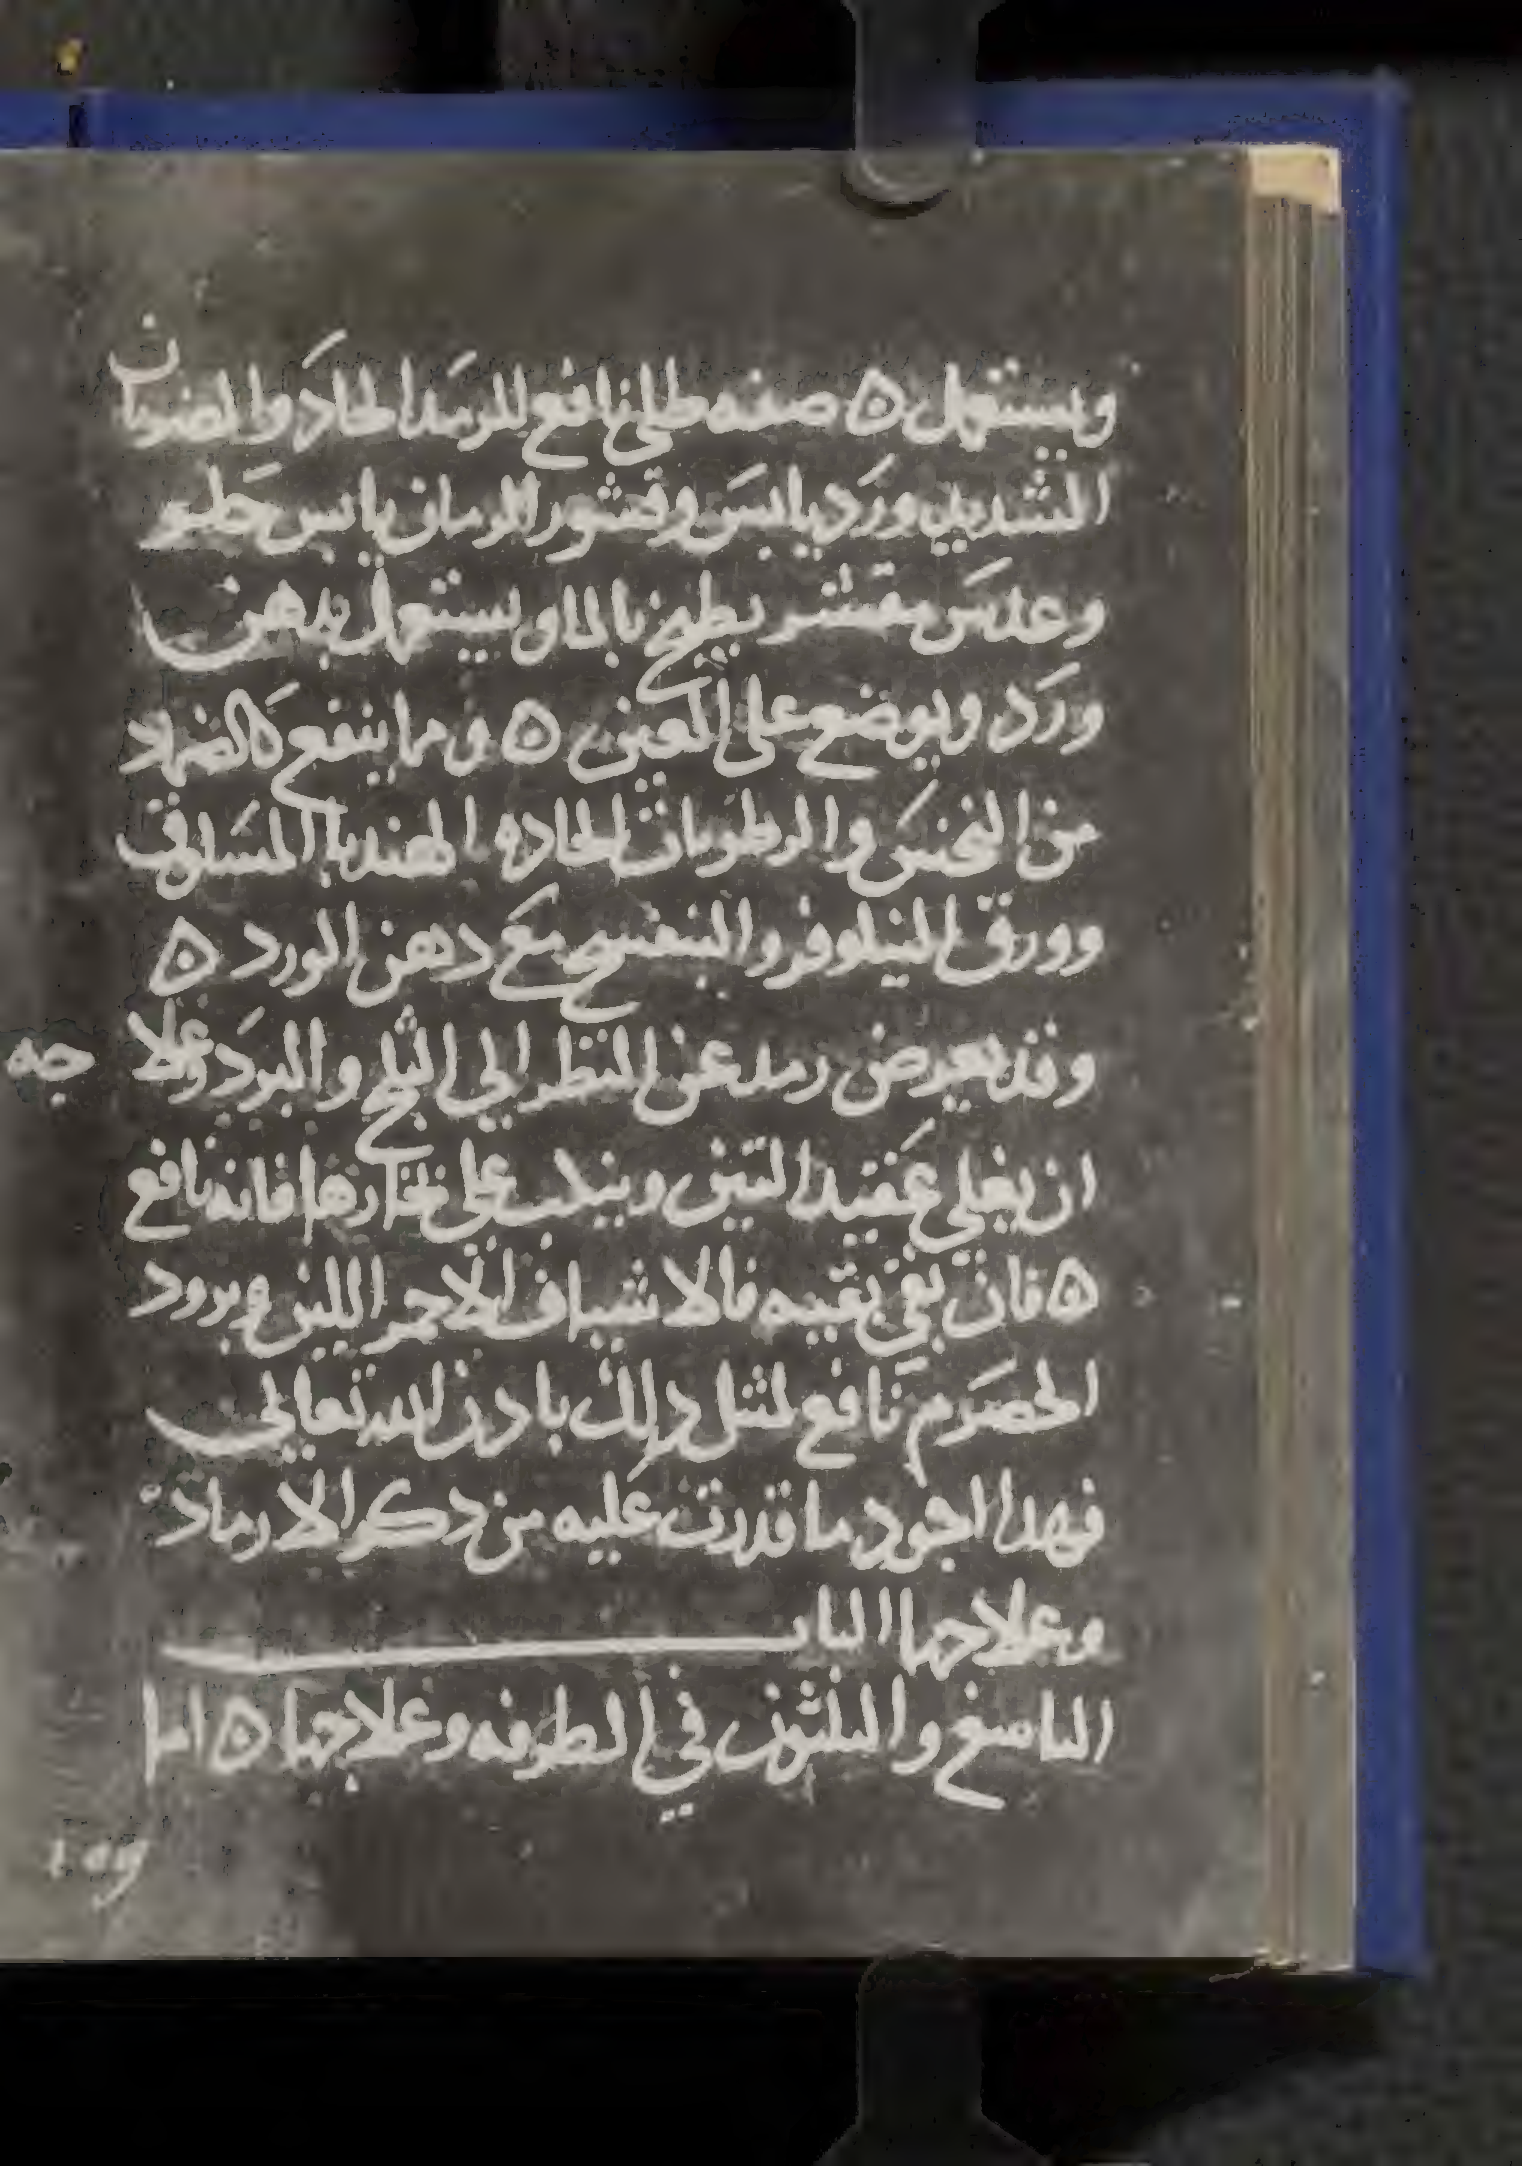 ويستعمل ه صفه طلي نافع للرمد الحاد والضربان
الشديد ورد يابس وقشور الرمان يابس حلو
وعدس مقشر يطبخ بالماء ويستعمل بدهن
ورد ويوضع على العين ه ومما ينفع كالضماد
من النخس والرطوبات الحاده الهندبا المسلوق
وورق النيلوفر والبنفسج مع دهن الورد ه
وقد يعرض رمد عن النظر الي الثلج والبرد وعلاجه
ان يغلي عقيد التين وينكب على بخارها فانه نافع
ه فان بقي بقيه فالاشياف الاحمر اللين وبرود
الحصرم نافع لمثل ذلك بادن الله تعالي
فهدا اجود ما قدرت عليه من دكر الارماد
وعلاجها الباب
التاسع والثلثون في الطرفه وعلاجها ه اما